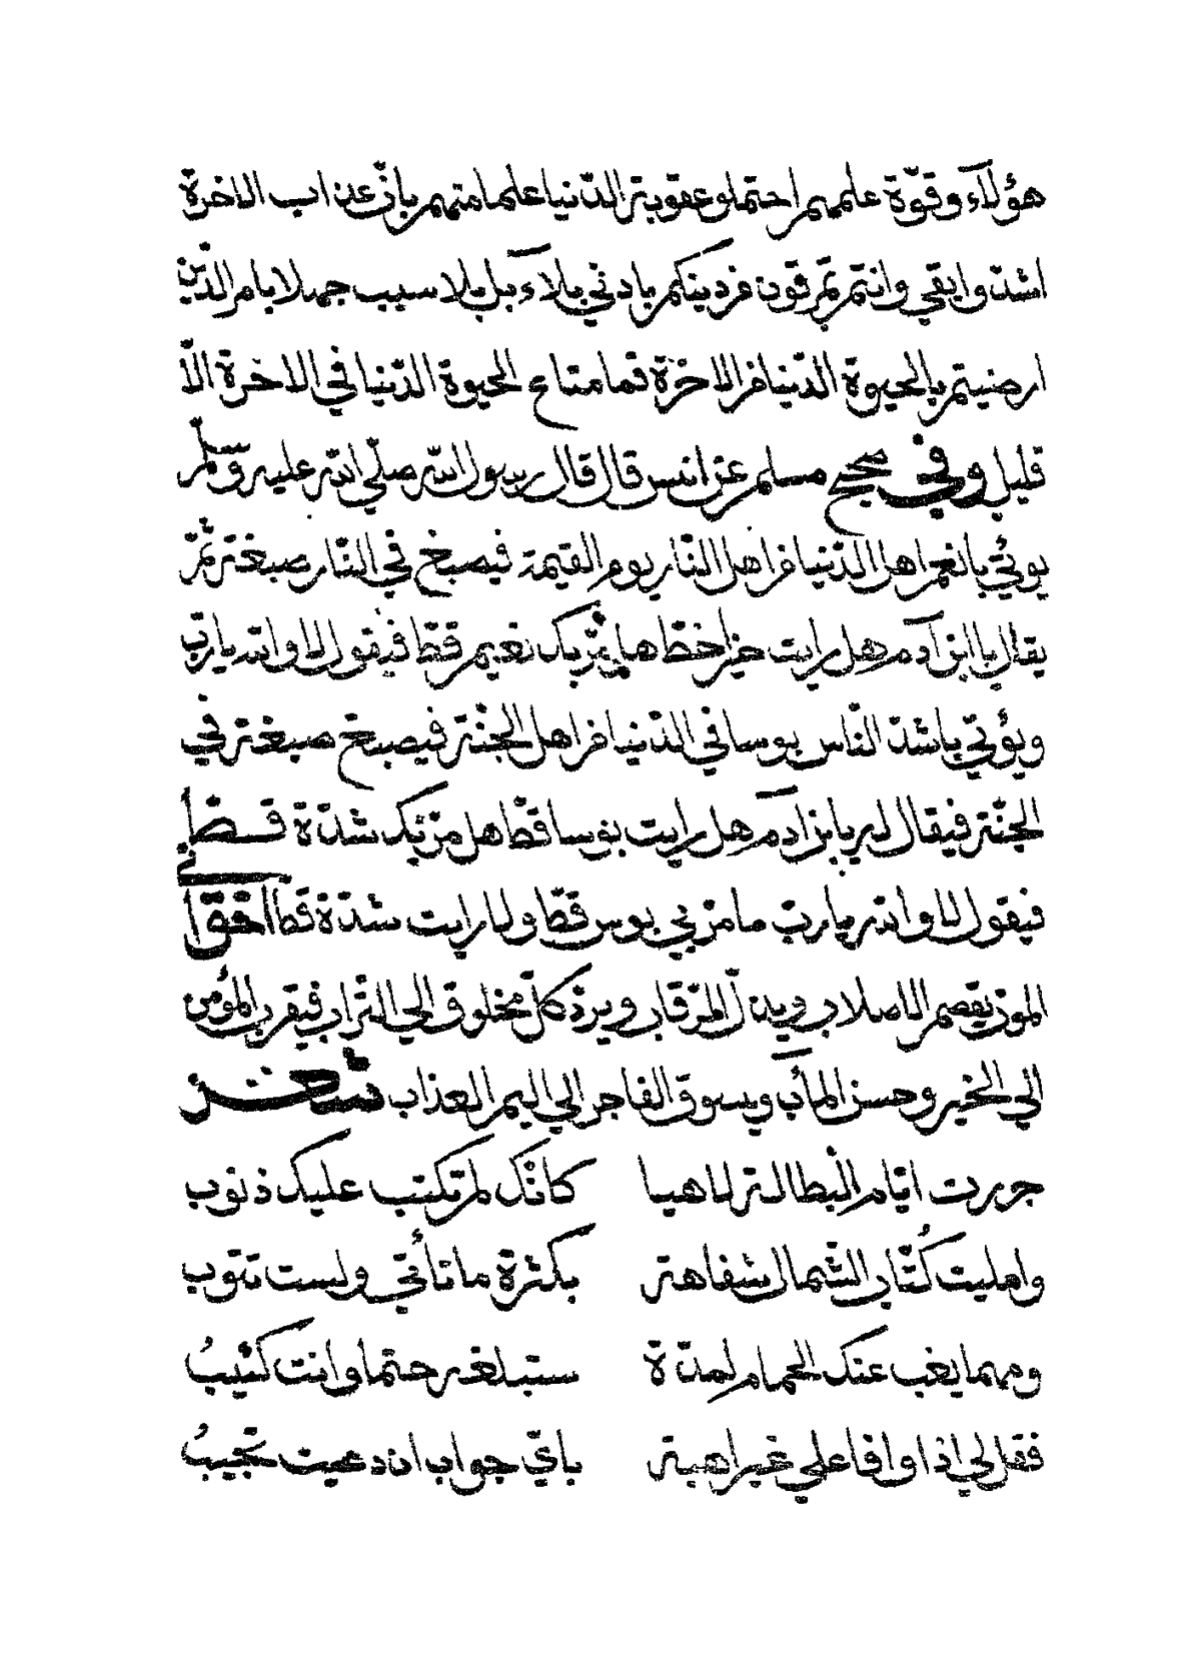 هؤلآء وقوّة علمهم احتملو عقوبة الدّنيا علما منهم بانّ عذاب الاخرة
اشدّ وابقي وانتم تمرقون من دينكم بادني بلآء بل بلا سبب جهلا يا من الذين
ارضيتم بالحيوة الدّنيا من الاخرة فما متاع الحيوة الدّنيا في الاخرة الّا
قليل وفي صحيح مسلم عن انس قال قال رسول الله صلّي الله عليه وسلم
يوتي بانعم اهل الدّنيا من اهل النّار يوم القيمة فيصبغ في النّار صبغة ثمّ
يقال يا ابن آدم هل رايت خيرا خطّ هل مرّ بك نعيم قطّ فيقول لا والله يا ربّ
ويؤتي باشدّ النّاس بوسا في الدّنيا من اهل الجنّة فيصبغ صبغة في
الجنّة فيقال له يا بن آدم هل رايت بوسا قطّ هل مرّ بك شدّة قـط
فيقول لا والله يا ربّ ما مرّ بي بوس قطّ ولا رايت شدّة قط
الموت يقصم الاصلاب ويذلّ الرّقاب ويردّ كلّ مخلوق الي التّراب فيقرب المؤمن
الي الخير وحسن المآب ويسوق الفاجر الي اليم العذاب شعر
جررت ايّام البطالة لاهيا كانّك لم تكتب عليك ذنوب
وامليت كُتّاب الشّمال سفاهة بكثرة ما تأتي ولست تتوب
ومهما يغب عنك الحمام لمدّة ستبلغه حتما وانت كئيبُ
فقل لي اذا وافا علي غير اهبة بايّ جواب ان دعيت تجيبُ